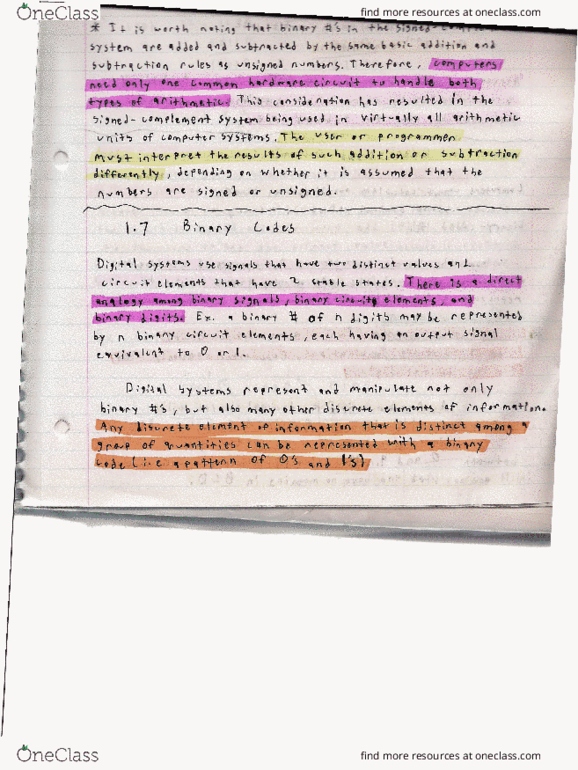 OneClass
find more resources at oneclass.com
* It is worth noting that binary #'s in the signed-
system are added and subtracted by the same basic addition and
subtraction rules as unsigned numbers. Therefore, computers
need only one common hardware circuit to handle both
types of arithmetic. This consideration has resulted in the
signed-complement system being used in virtually all arithmetic
units of computer systems. The user or programmer
must interpret the results of such addition or subtraction
differently, depending on whether it is assumed that the
numbers are signed or unsigned.
1.7 Binary Codes
Digital systems use signals that have two distinct values and
circuit elements that have 2 stable states. There is a direct
analogy among binary signals, binary circuit elements, and
binary digits. Ex. a binary # of n digits may be represented
by n binary circuit elements, each having an output signal
equivalent to 0 or 1.
Digital Systems represent and manipulate not only
binary #'s, but also many other discrete elements of information.
Any discrete element of information that is distinct among a
group of quantities can be represented with a binary
code (i.e. a pattern of 0's and 1's)
OneClass
find more resources at oneclass.com